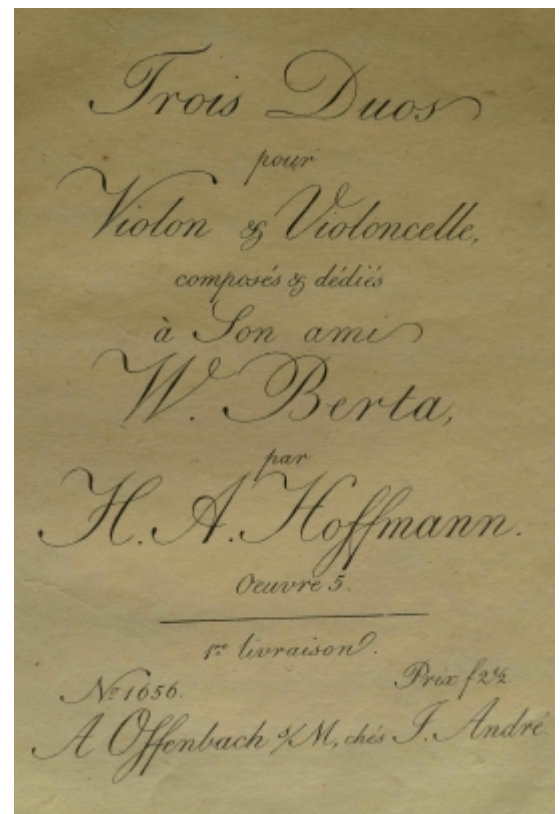 Trois Duos
pour
Violon & Violoncelle,
composés & dédiés
à Son ami
W. Berta,
par
H. A. Hoffmann.
Oeuvre 5.
1re livraison.
No 1656. Prix f 2½
A Offenbach s/M, chés J. André